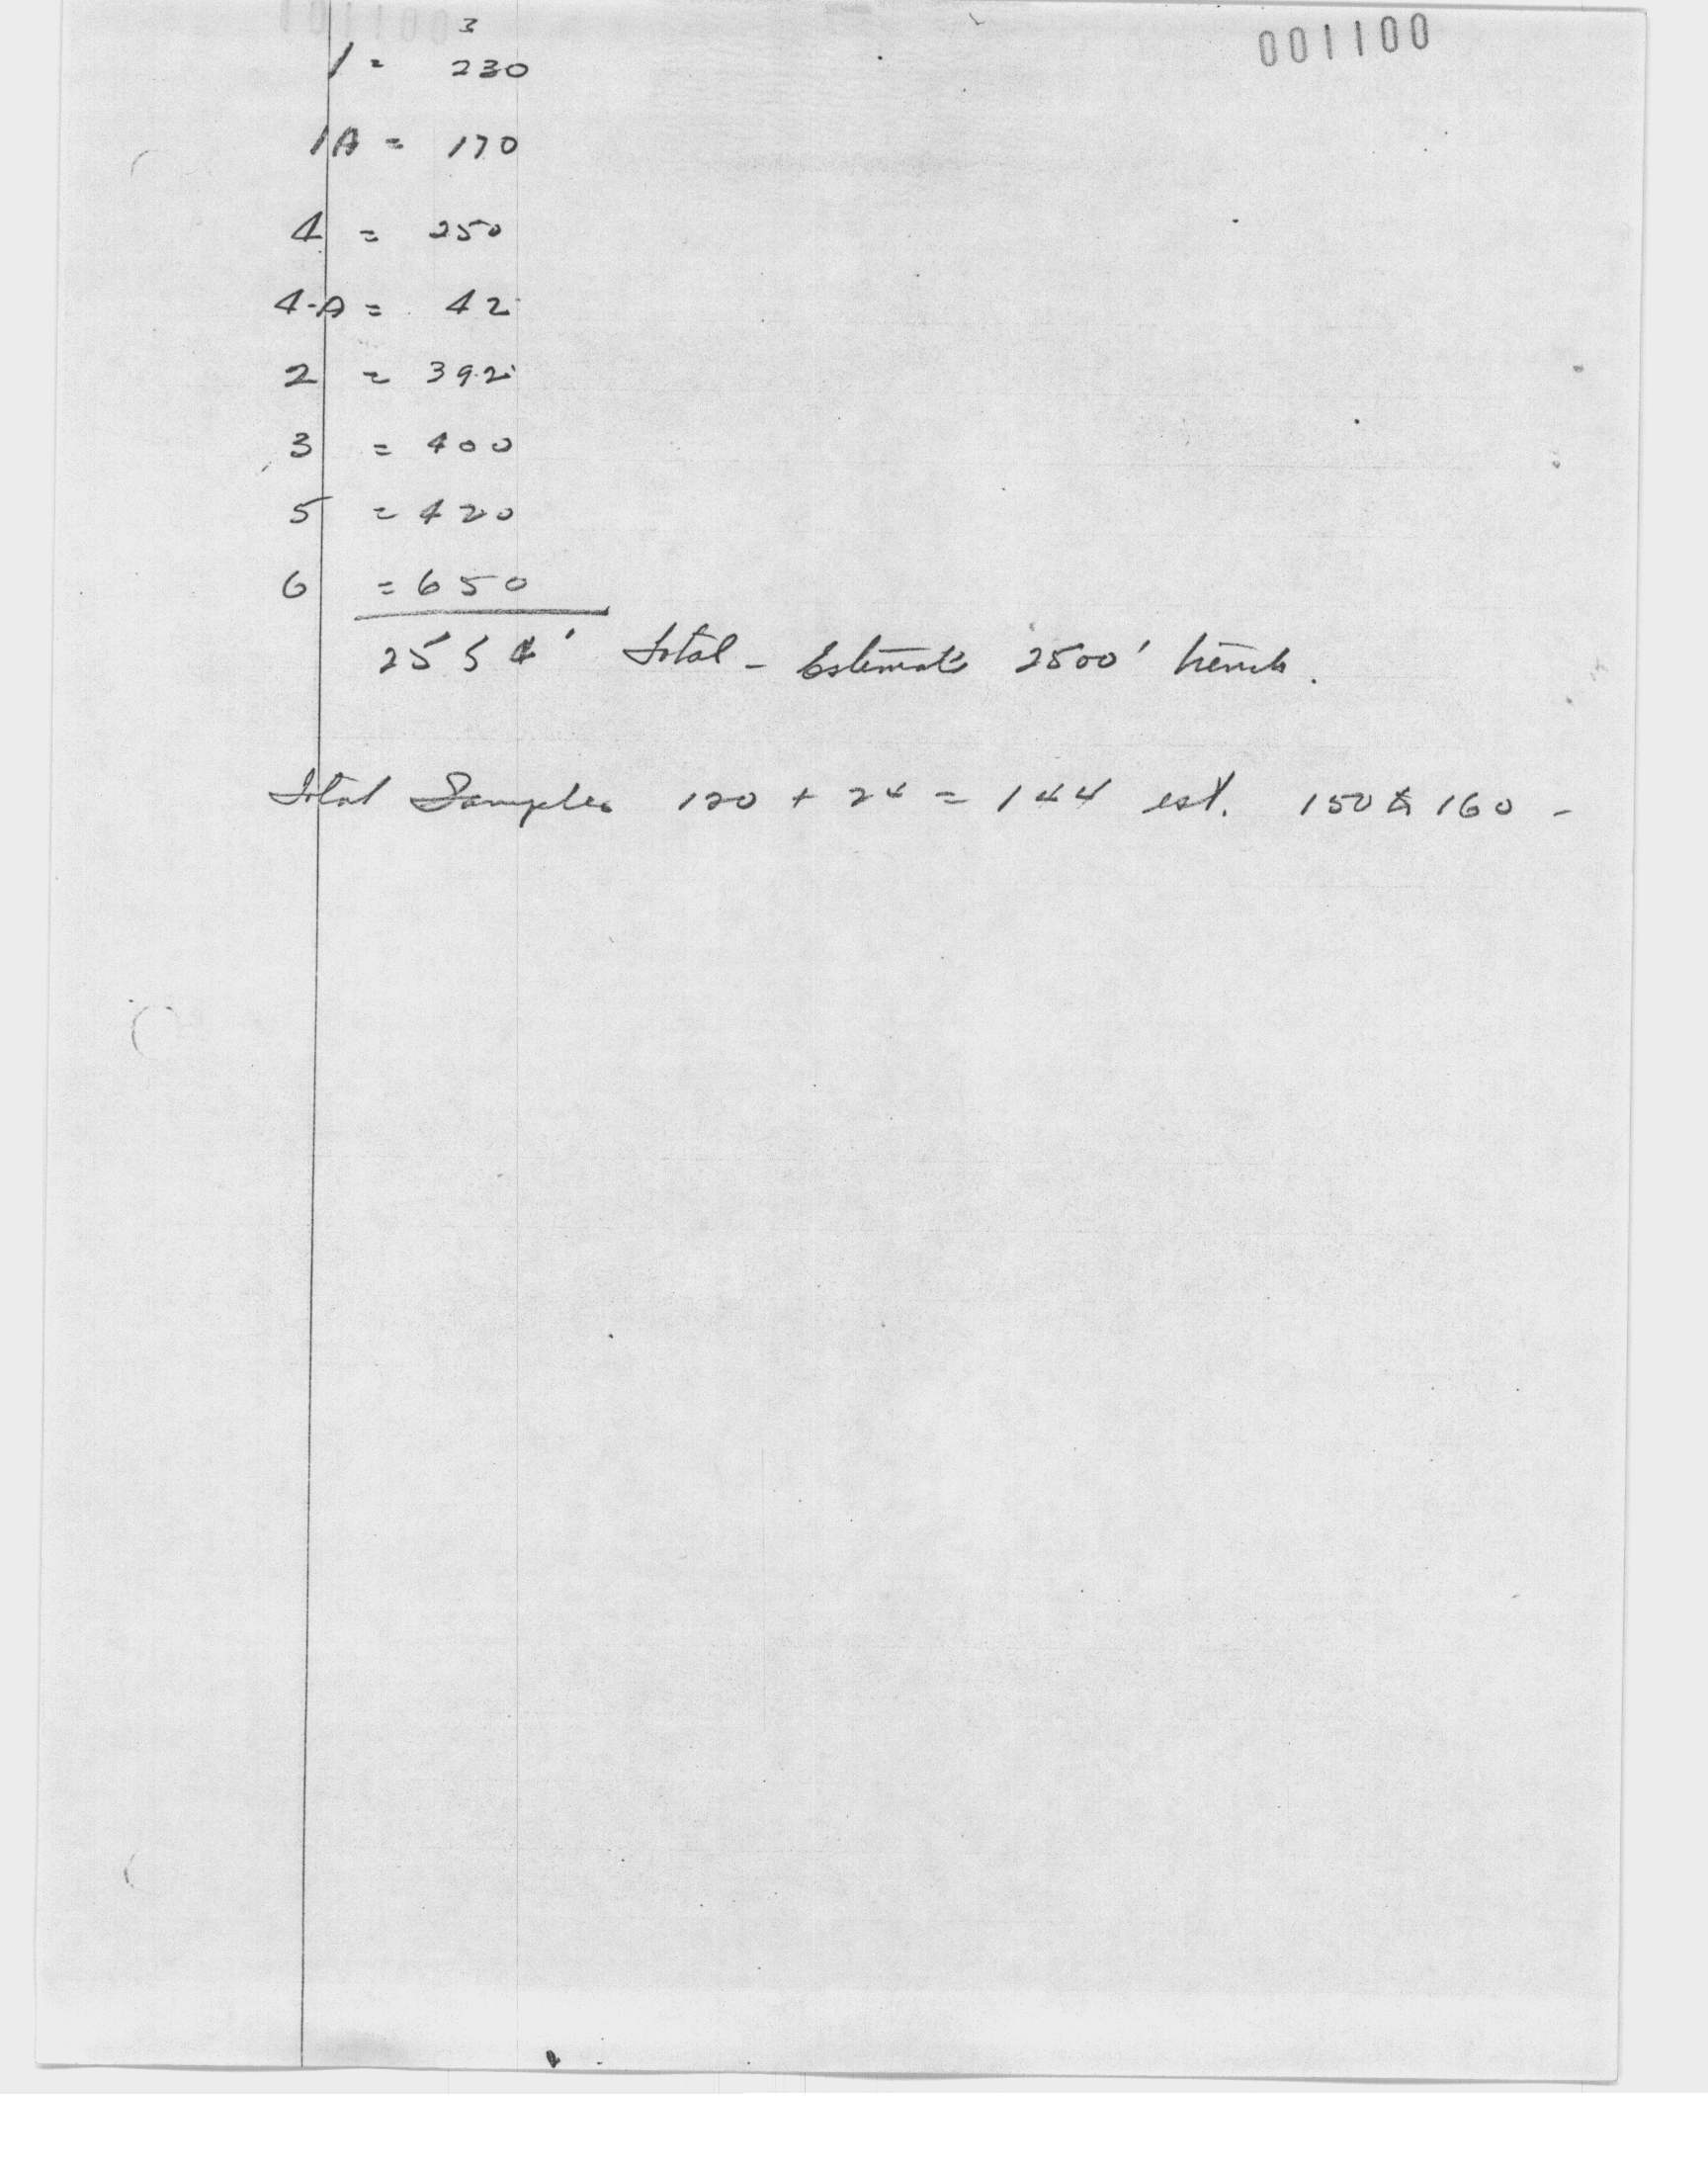 001100
3
1 = 230
1A = 170
4 = 250
4-A = 42
2 = 392
3 = 400
5 = 420
6 = 650
2554' Total - Estimate 2500' trench.
Total Samples 120 + 24 = 144 est. 150 to 160 -